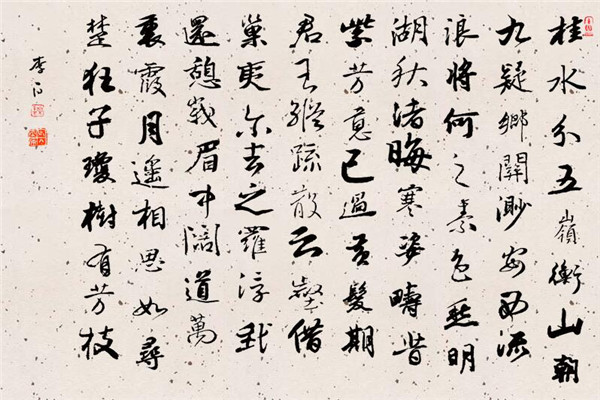 桂水分五嶺衡山朝
九疑鄉關渺安西流
浪將何之素色愁明
湖秋渚晦寒姿疇昔
紫芳意已過黃髮期
君王縱疏散云壑借
巢夷尔去之羅浮我
還憩峨眉中闊道萬
裏霞月遙相思如尋
楚狂子瓊樹有芳枝
李白